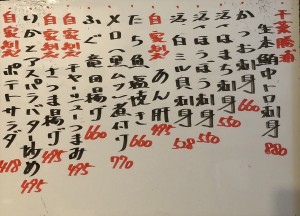 千葉勝浦
生本鮪中トロ刺身 880
かつお刺身 660
活ほうぼう刺身 550
活白ミル貝刺身 528
自家製 あん肝 495
たら魚塩焼き 660
メロ(黒ムツ)煮付け 770
ふぐ唐揚げ 660
自家製 チャーシューつまみ 495
自家製 さつま揚げ 495
りかとアスパラバター炒め 495
自家製 ポテトサラダ 418